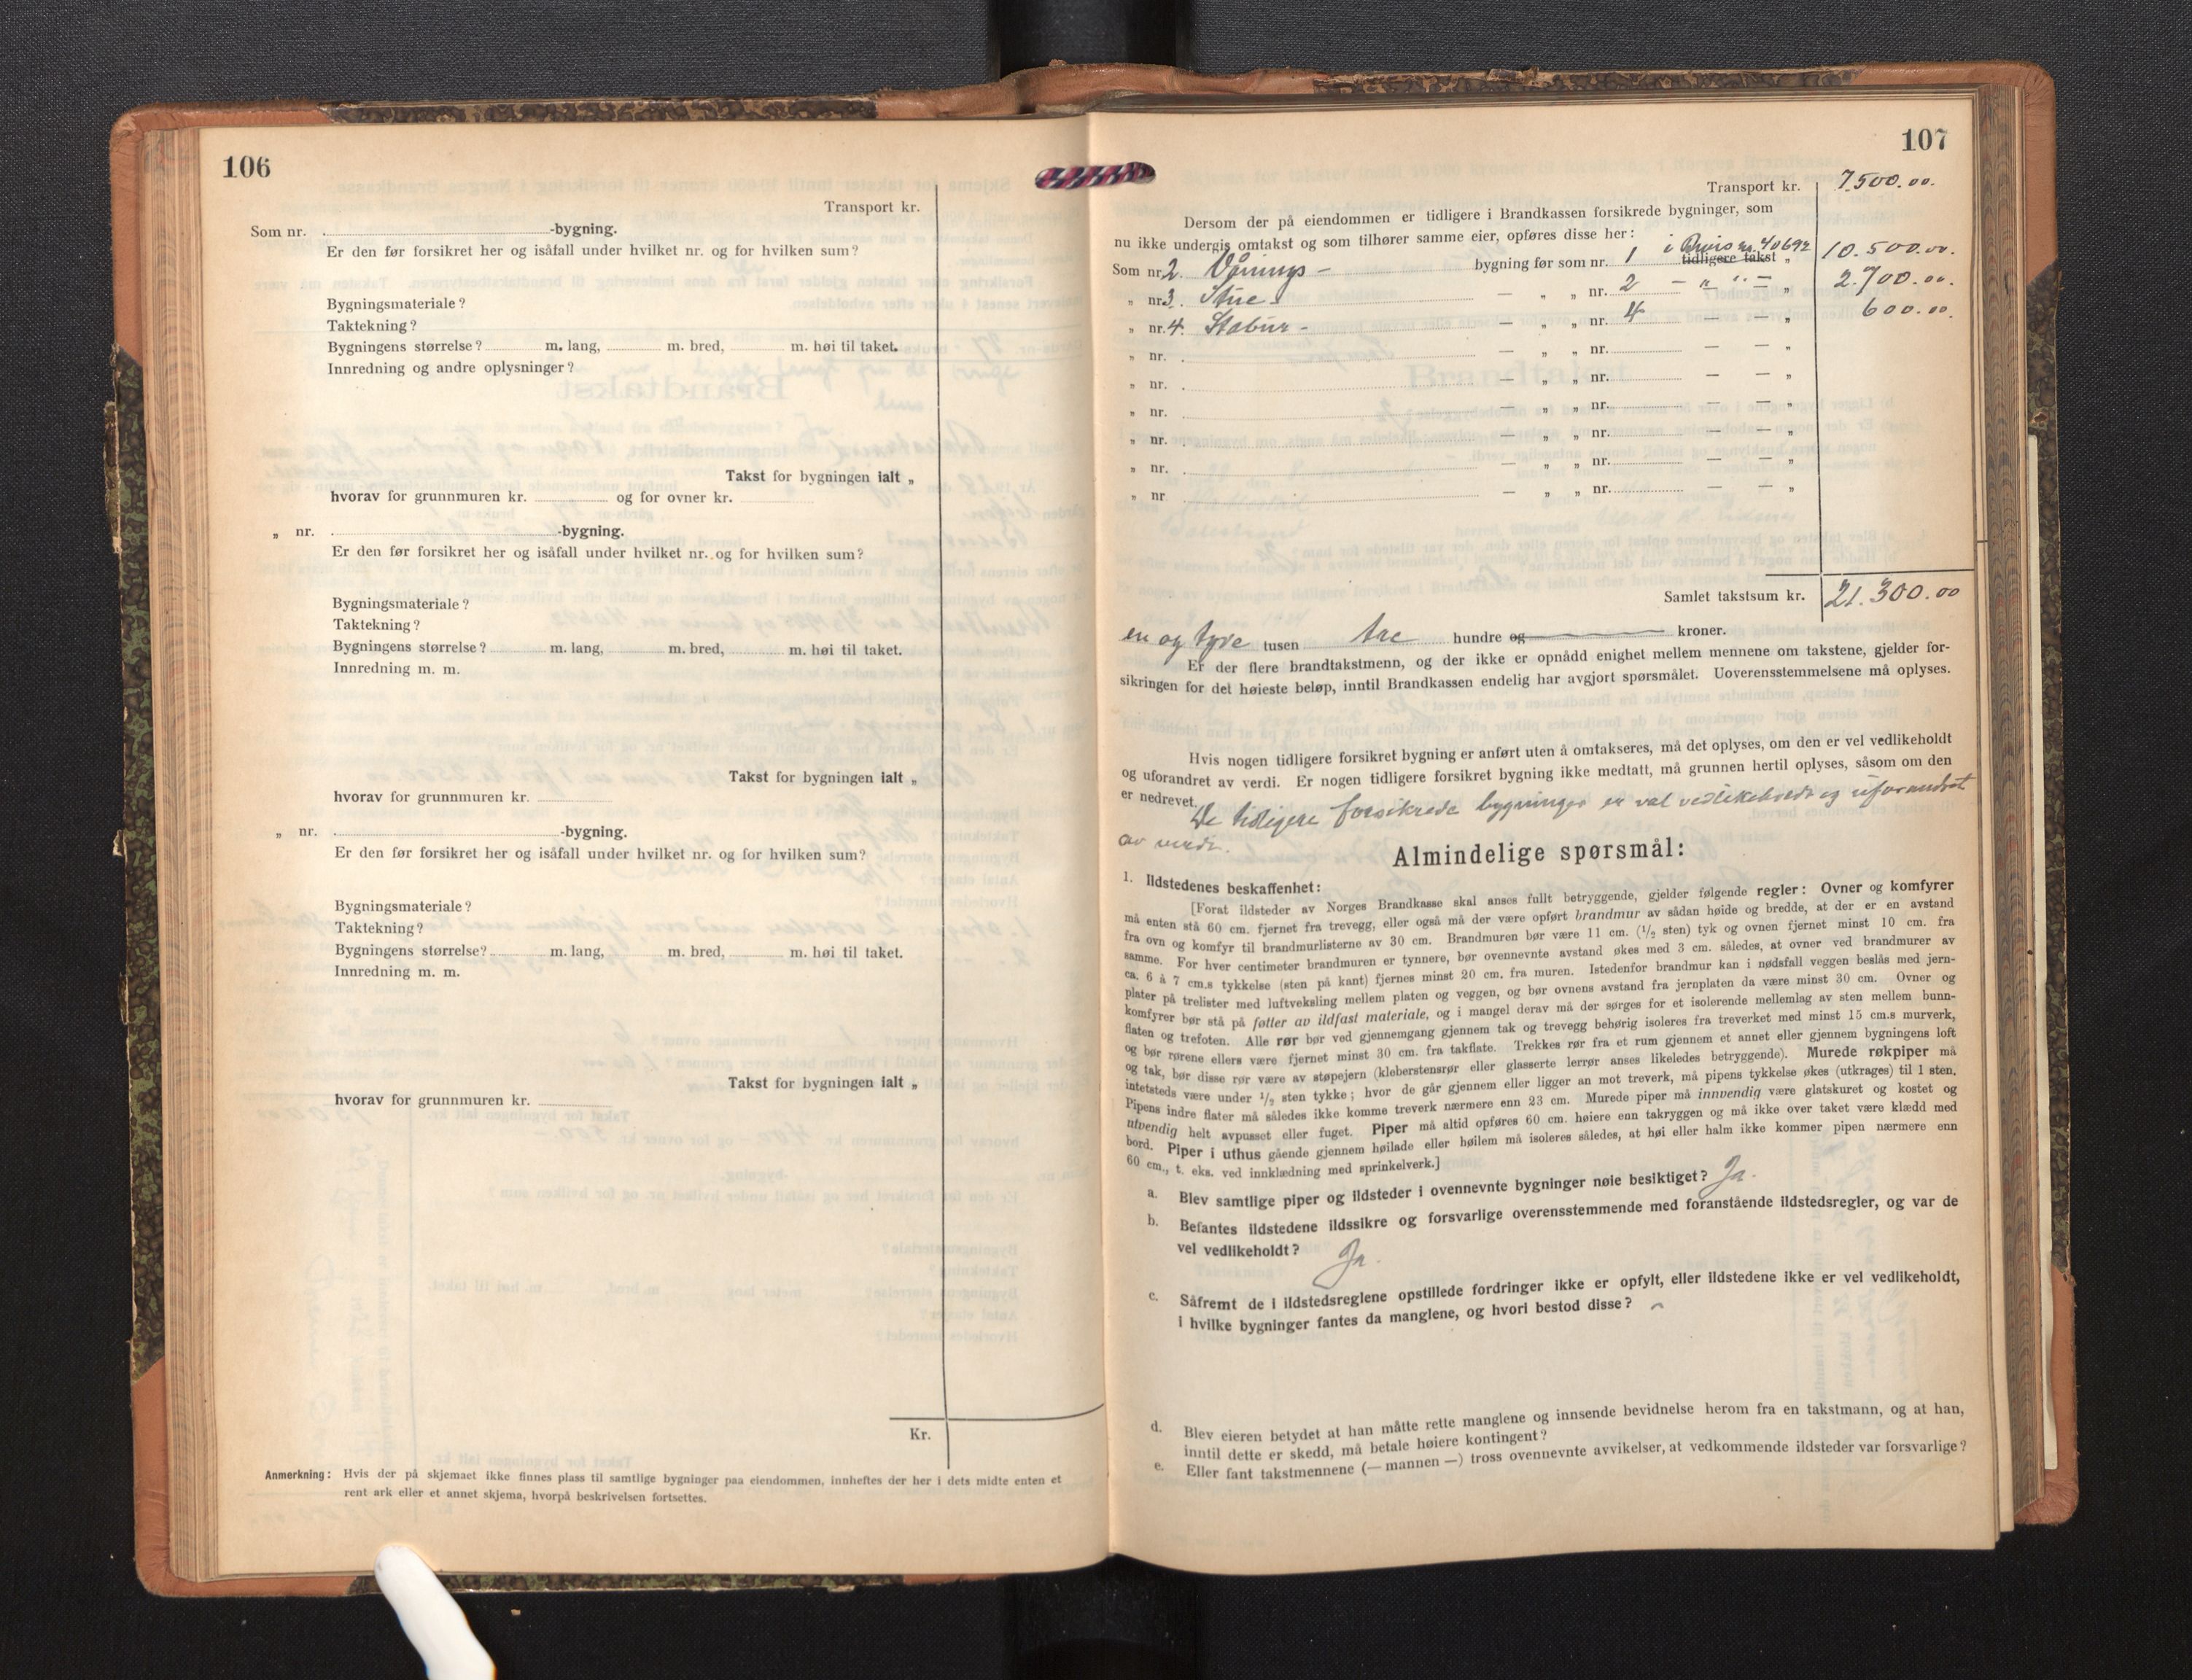 106
Transport kr.
Som nr. -bygning.
Er den før forsikret her og isåfall under hvilket nr. og for hvilken sum?
Bygningsmateriale?
Taktekning?
Bygningens størrelse? m. lang, m. bred, m. høi til taket.
Innredning og andre oplysninger?
Takst for bygningen ialt „
hvorav for grunnmuren kr. og for ovner kr.
„ nr. -bygning.
Er den før forsikret her og isåfall under hvilket nr. og for hvilken sum?
Bygningsmateriale?
Taktekning?
Bygningens størrelse? m. lang, m. bred, m. høi til taket.
Innredning m. m.
Takst for bygningen ialt „
hvorav for grunnmuren kr.
„ nr. -bygning.
Er den før forsikret her og isåfall under hvilket nr. og for hvilken sum?
Bygningsmateriale?
Taktekning?
Bygningens størrelse? m. lang, m. bred, m. høi til taket.
Innredning m. m.
Takst for bygningen ialt „
hvorav for grunnmuren kr.
Kr.
Anmerkning: Hvis der på skjemaet ikke finnes plass til samtlige bygninger paa eiendommen, innheftes der her i dets midte enten et
rent ark eller et annet skjema, hvorpå beskrivelsen fortsettes.
107
Transport kr. 7.500.00.
Dersom der på eiendommen er tidligere i Brandkassen forsikrede bygninger, som
nu ikke undergis omtakst og som tilhører samme eier, opføres disse her:
Som nr. 2. Vånings- bygning før som nr. 1 i Bevis nr. 40692 tidligere takst „ 10.500.00.
„ nr. 3. Stue- — „ „ nr. 2 — „ — „ 2.700.00.
„ nr. 4. Stabur- — „ „ nr. 4 — — „ 600.00.
„ nr. — „ „ nr. — — „
„ nr. — „ „ nr. — — „
„ nr. — „ „ nr. — — „
„ nr. — „ „ nr. — — „
„ nr. — „ „ nr. — — „
„ nr — „ „ nr. — — „
Samlet takstsum kr. 21.300.00
en og tyve tusen tre hundre og kroner.
Er der flere brandtakstmenn, og der ikke er opnådd enighet mellem mennene om takstene, gjelder for-
sikringen for det høieste beløp, inntil Brandkassen endelig har avgjort spørsmålet. Uoverensstemmelsene må oplyses.
Hvis nogen tidligere forsikret bygning er anført uten å omtakseres, må det oplyses, om den er vel vedlikeholdt
og uforandret av verdi. Er nogen tidligere forsikret bygning ikke medtatt, må grunnen hertil oplyses, såsom om den
er nedrevet.
De tidligere forsikrede bygninger er vel vedlikeholdt og uforandret
av verdi.
Almindelige spørsmål:
1. Ildstedenes beskaffenhet:
[Forat ildsteder av Norges Brandkasse skal anses fullt betryggende, gjelder følgende regler: Ovner og komfyrer
må enten stå 60 cm. fjernet fra trevegg, eller også må der være opført brandmur av sådan høide og bredde, at der er en avstand
fra ovn og komfyr til brandmurlisterne av 30 cm. Brandmuren bør være 11 cm. (1/2 sten) tyk og ovnen fjernet minst 10 cm. fra
samme. For hver centimeter brandmuren er tynnere, bør ovennevnte avstand økes med 3 cm. således, at ovner ved brandmurer av
ca. 6 à 7 cm.s tykkelse (sten på kant) fjernes minst 20 cm. fra muren. Istedenfor brandmur kan i nødsfall veggen beslås med jern-
plater på trelister med luftveksling mellem platen og veggen, og bør ovnens avstand fra jernplaten da være minst 30 cm. Ovner og
komfyrer bør stå på føtter av ildfast materiale, og i mangel derav må der sørges for et isolerende mellemlag av sten mellem bunn-
flaten og trefoten. Alle rør bør ved gjennemgang gjennem tak og trevegg behørig isoleres fra treverket med minst 15 cm.s murverk,
og bør rørene ellers være fjernet minst 30 cm. fra takflate. Trekkes rør fra et rum gjennem et annet eller gjennem bygningens loft
og tak, bør disse rør være av støpejern (kleberstensrør eller glasserte lerrør anses likeledes betryggende). Murede røkpiper må
intetsteds være under 1/2 sten tykke; hvor de går gjennem eller ligger an mot treverk, må pipens tykkelse økes (utkrages) til 1 sten.
Pipens indre flater må således ikke komme treverk nærmere enn 23 cm. Murede piper må innvendig være glatskuret og kostet og
utvendig helt avpusset eller fuget. Piper må altid opføres 60 cm. høiere enn takryggen og må ikke over taket være klædd med
bord. Piper i uthus gående gjennem høilade eller høilem må isoleres således, at høi eller halm ikke kommer pipen nærmere enn
60 cm., t. eks. ved innklædning med sprinkelverk.]
a. Blev samtlige piper og ildsteder i ovennevnte bygninger nøie besiktiget? Ja.
b. Befantes ildstedene ildssikre og forsvarlige overensstemmende med foranstående ildstedsregler, og var de
vel vedlikeholdt? Ja.
c. Såfremt de i ildstedsreglene opstillede fordringer ikke er opfylt, eller ildstedene ikke er vel vedlikeholdt,
i hvilke bygninger fantes da manglene, og hvori bestod disse?
d. Blev eieren betydet at han måtte rette manglene og innsende bevidnelse herom fra en takstmann, og at han,
inntil dette er skedd, må betale høiere kontingent?
e. Eller fant takstmennene (— mannen —) tross ovennevnte avvikelser, at vedkommende ildsteder var forsvarlige?